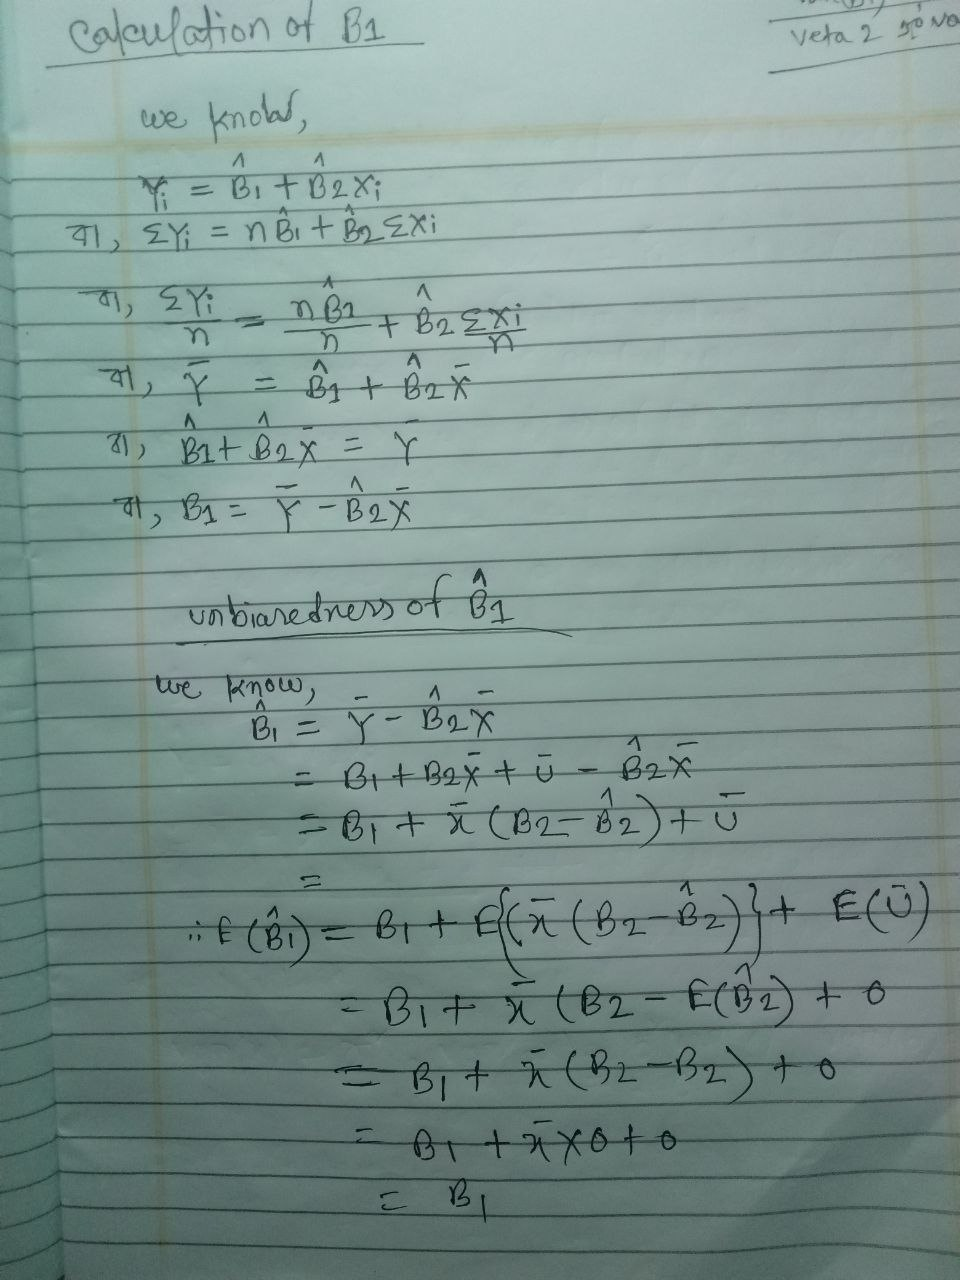 Calculation of B1
Veta 2
we know,
Yi = B̂1 + B̂2Xi
বা, ΣYi = nB̂1 + B̂2ΣXi
বা, ΣYi/n = nB̂1/n + B̂2 ΣXi/n
বা, Ȳ = B̂1 + B̂2X̄
বা, B̂1 + B̂2X̄ = Ȳ
বা, B1 = Ȳ - B̂2X̄
unbiasedness of B̂1
we know,
B̂1 = Ȳ - B̂2X̄
= B1 + B2X̄ + Ū - B̂2X̄
= B1 + x̄ (B2 - B̂2) + Ū
=
∴ E(B̂1) = B1 + E{(x̄ (B2 - B̂2)} + E(Ū)
= B1 + x̄ (B2 - E(B̂2) + 0
= B1 + x̄ (B2 - B2) + 0
= B1 + x̄ × 0 + 0
= B1